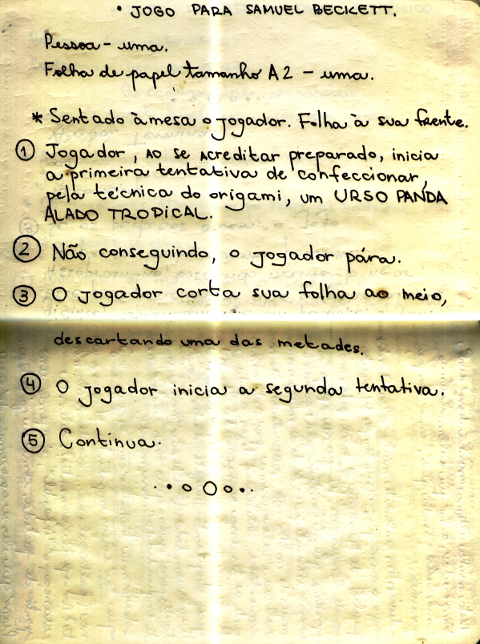 • JOGO PARA SAMUEL BECKETT.
Pessoa - uma.
Folha de papel tamanho A2 - uma.
* Sentado à mesa o jogador. Folha à sua frente.
① Jogador, ao se acreditar preparado, inicia
a primeira tentativa de confeccionar,
pela técnica do origami, um URSO PANDA
ALADO TROPICAL.
② Não conseguindo, o jogador pára.
③ O jogador corta sua folha ao meio,
descartando uma das metades.
④ O jogador inicia a segunda tentativa.
⑤ Continua.